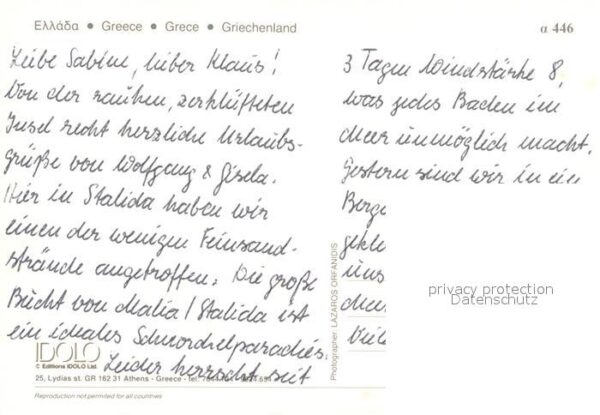 Ελλάδα • Greece • Grece • Griechenland
α 446
Liebe Sabine, lieber Klaus!
Von der rauhen, zerklüfteten
Insel recht herzliche Urlaubs-
grüße von Wolfgang & Gisela.
Hier in Stalida haben wir
einen der wenigen Feinsand-
strände angetroffen. Die große
Bucht von Malia/Stalida ist
ein ideales Schnorchelparadies.
Leider herrscht seit
3 Tagen Windstärke 8,
was jedes Baden im
Meer unmöglich macht.
Gestern sind wir in ein
Berg
gekle
uns
Viele
privacy protection
Datenschutz
Photographer: LAZAROS ORFANIDIS
IDOLO
© Editions IDOLO Ltd.
25, Lydias st. GR 162 31 Athens - Greece - tel.
Reproduction not permited for all countries